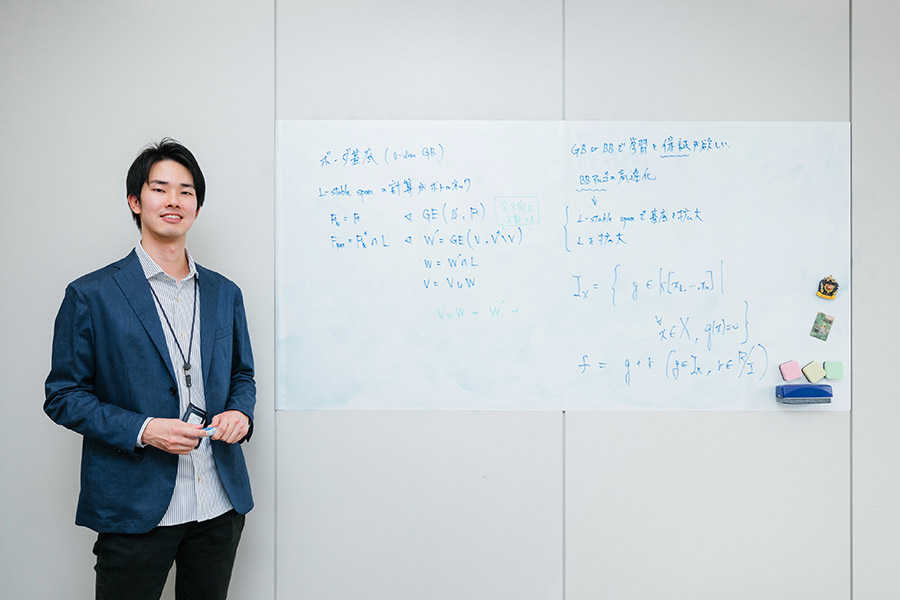 ボーダ基底 (0-dim GB)
L-stable span の計算がボトルネック
F₀ = F ◁ GE(∅, F)
= F ∩ L ◁ W' = GE(V, V⁺\V)
W = W' ∩ L
V = V ∪ W
V ∪ W → W' →
GB or BB で学習と保証が欲しい.
BB の高速化
↓
L-stable span で基底を拡大
L を拡大
I_X = { g ∈ k[x₁, …, xₙ] |
∀x ∈ X, g(x) = 0 }
f = g + r (g ∈ I_X, r ∈ R/I)